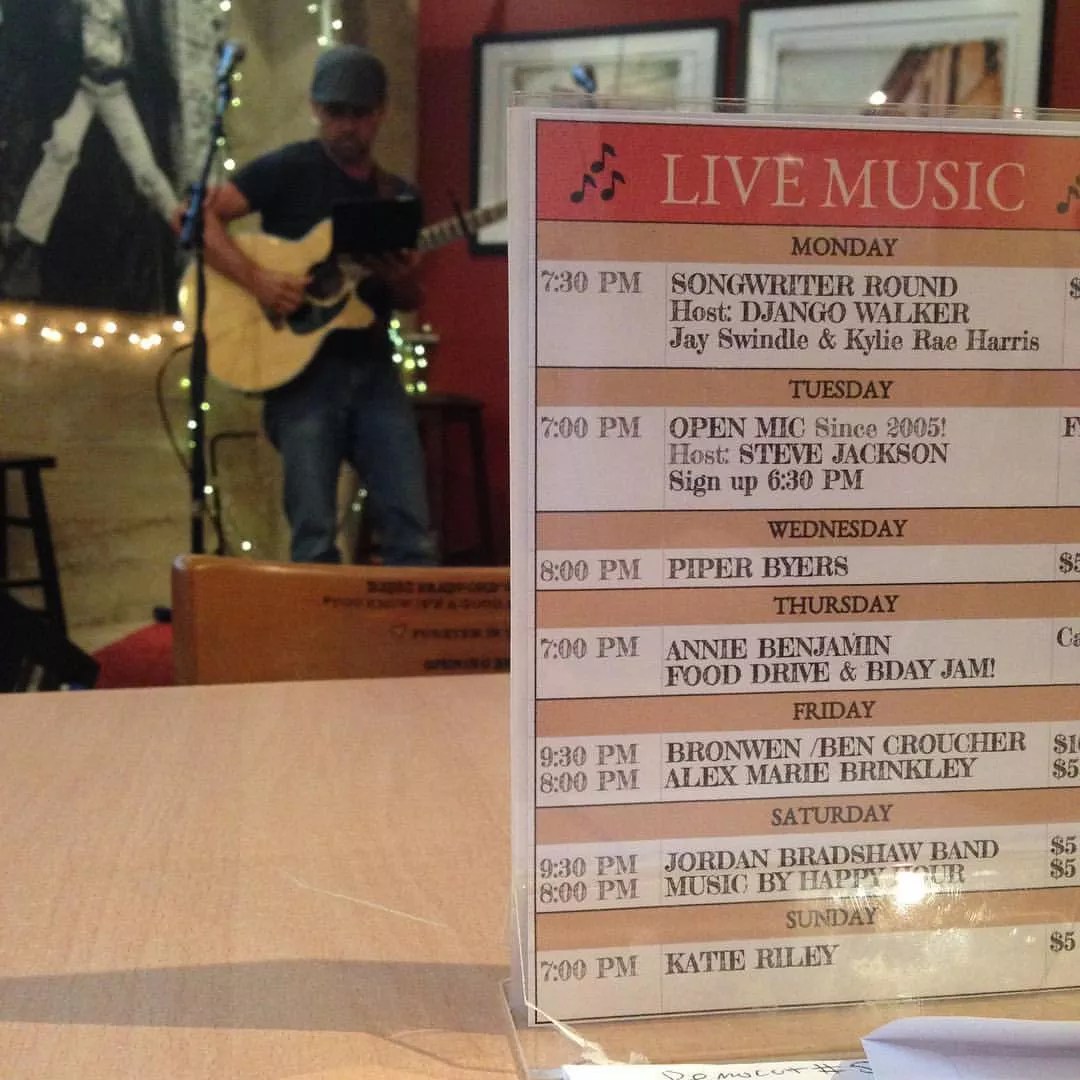 LIVE MUSIC
MONDAY
7:30 PM SONGWRITER ROUND $
Host: DJANGO WALKER
Jay Swindle & Kylie Rae Harris
TUESDAY
7:00 PM OPEN MIC Since 2005! F
Host: STEVE JACKSON
Sign up 6:30 PM
WEDNESDAY
8:00 PM PIPER BYERS $5
THURSDAY
7:00 PM ANNIE BENJAMIN Ca
FOOD DRIVE & BDAY JAM!
FRIDAY
9:30 PM BRONWEN /BEN CROUCHER $10
8:00 PM ALEX MARIE BRINKLEY $5
SATURDAY
9:30 PM JORDAN BRADSHAW BAND $5
8:00 PM MUSIC BY HAPPY HOUR $5
SUNDAY
7:00 PM KATIE RILEY $5